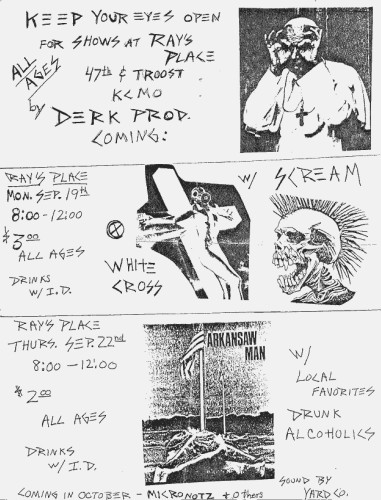 KEEP YOUR EYES OPEN
FOR SHOWS AT RAY'S
PLACE
ALL AGES
47th & TROOST
KCMO
by
DERK PROD.
COMING:
RAY'S PLACE
MON. SEP. 19th
8:00-12:00
$3.00
ALL AGES
DRINKS
W/ I.D.
WHITE
CROSS
W/ SCREAM
RAY'S PLACE
THURS. SEP. 22nd
8:00-12:00
$2.00
ALL AGES
DRINKS
W/ I.D.
ARKANSAW
MAN
W/
LOCAL
FAVORITES
DRUNK
ALCOHOLICS
SOUND BY
YARD CO.
COMING IN OCTOBER - MICRONOTZ + others